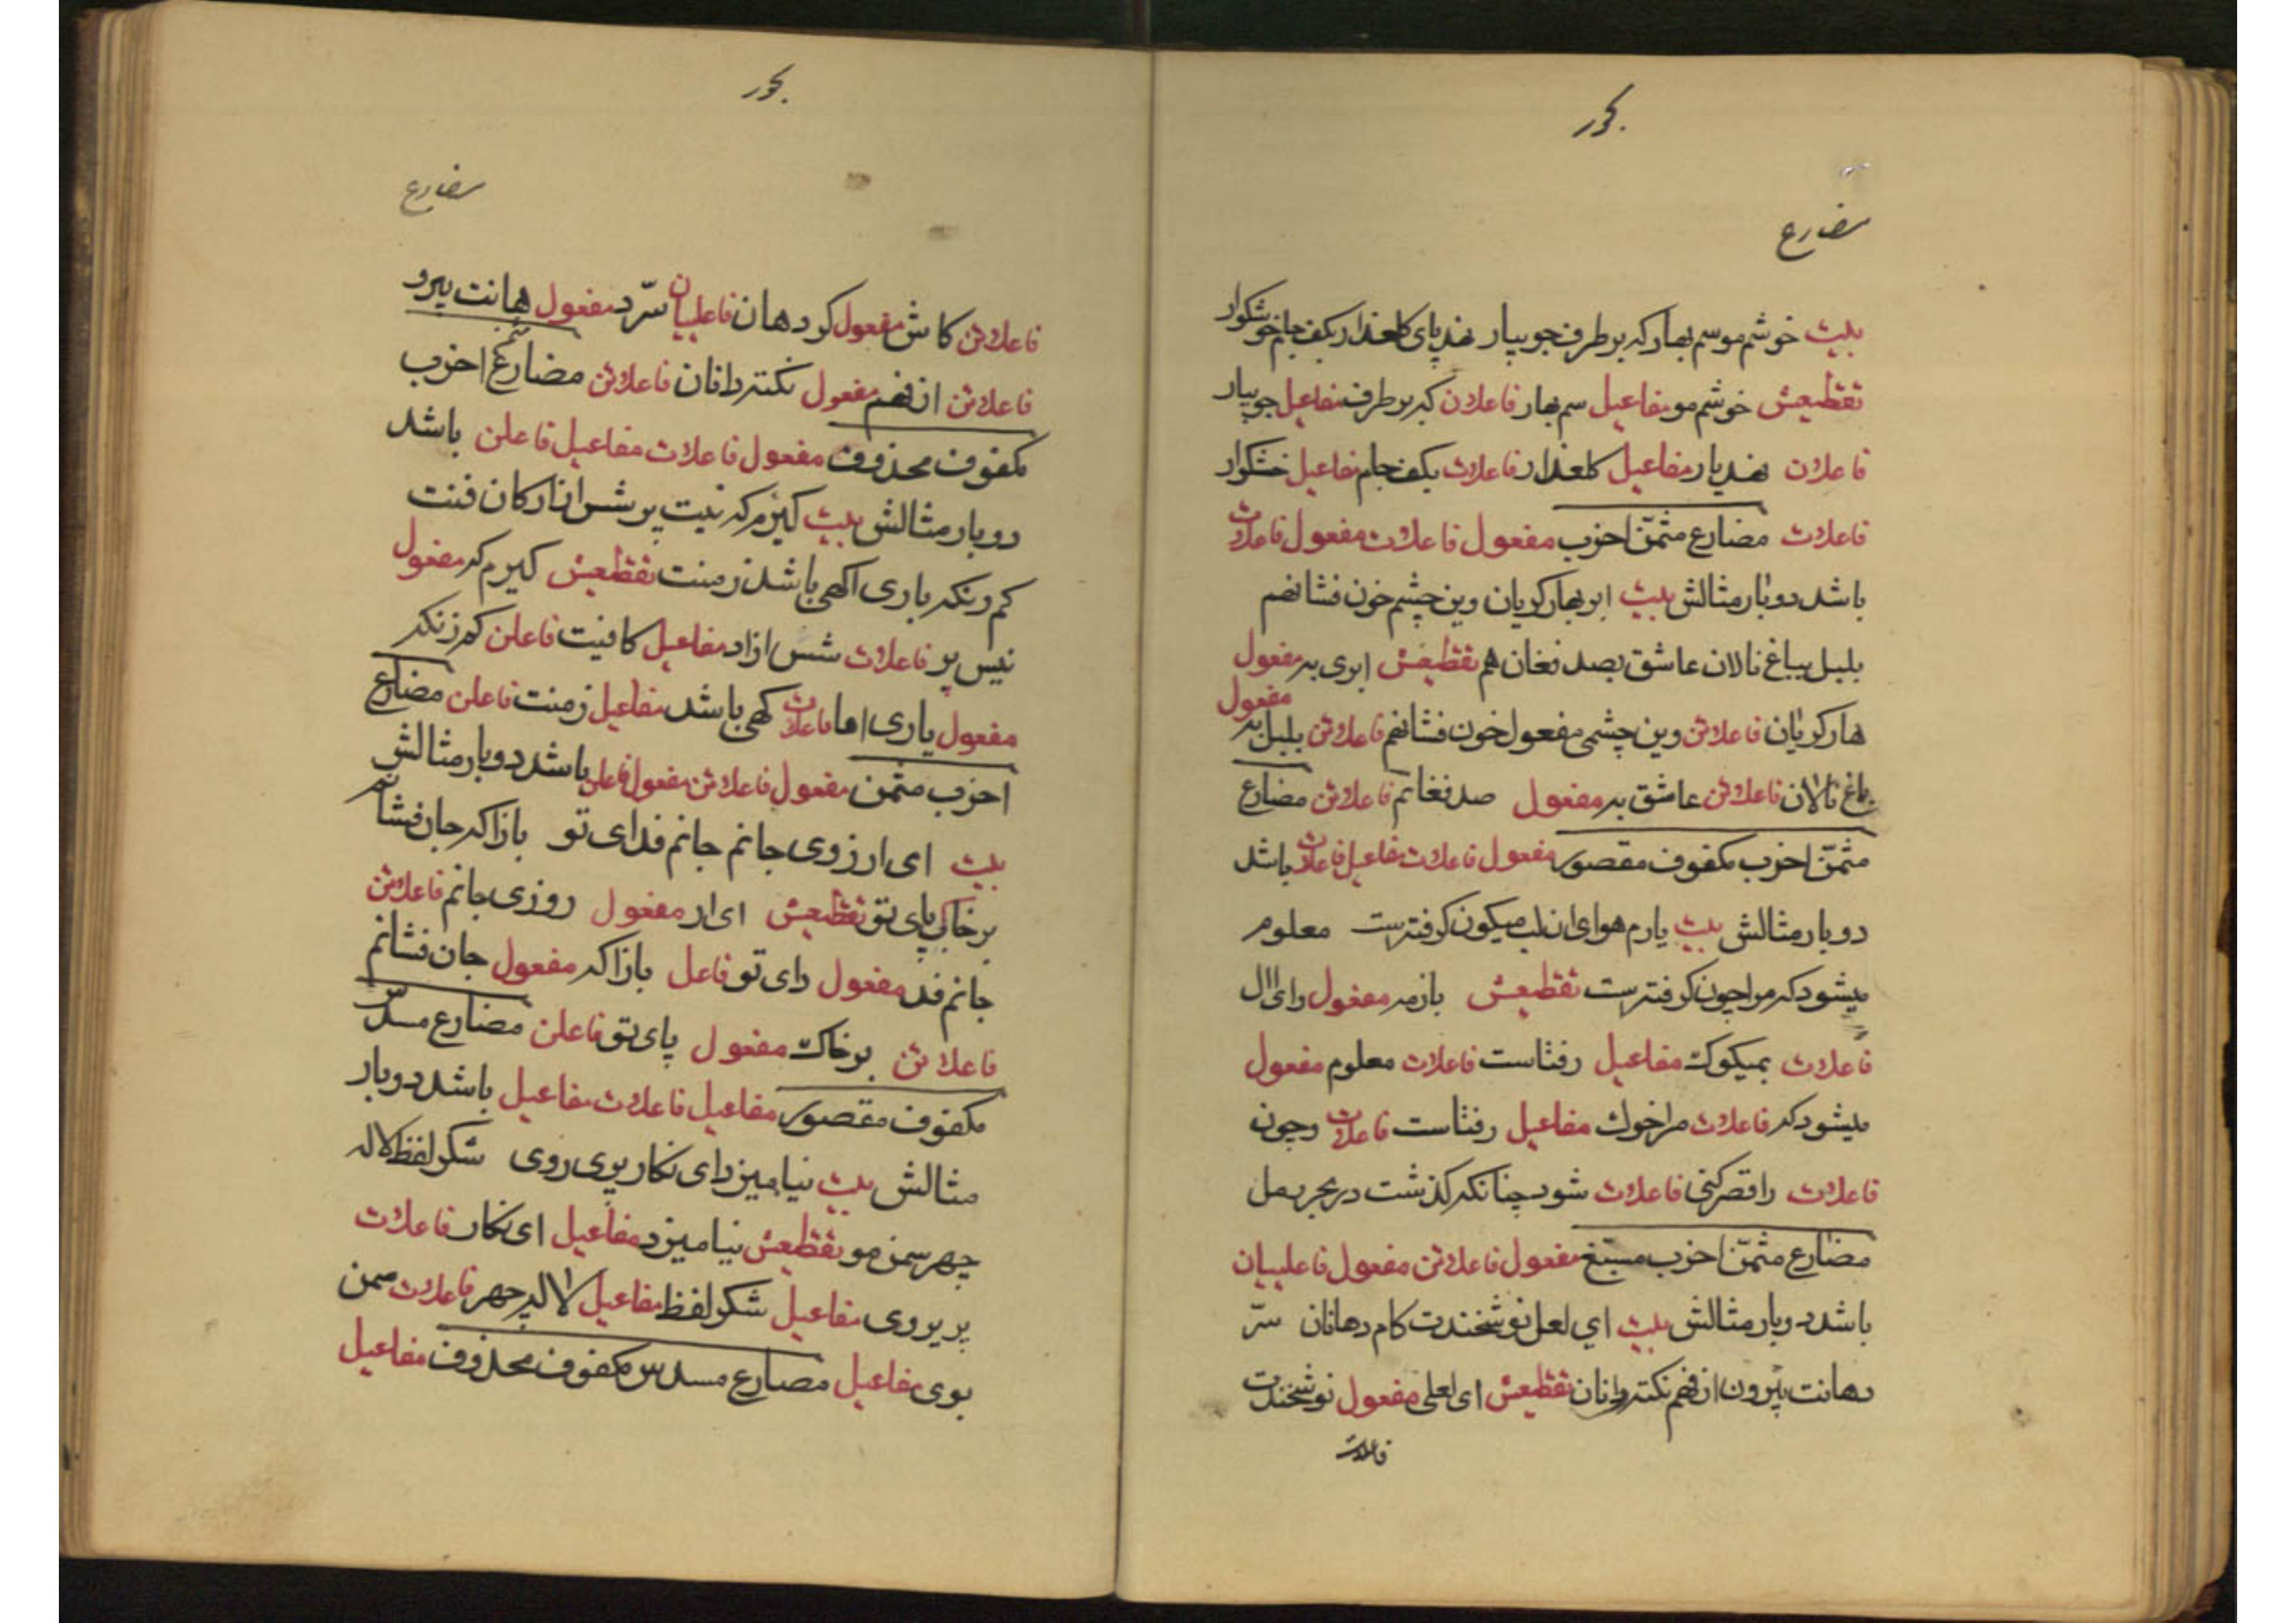 بحور
مضارع
بیت خوشم موسم بهار که بر طرف جویبار نهد پای کلعذار بکف جام خوشکوار
تقطیعش خوشم مو مفاعیل سم بهار فاعلان که بر طرف مفاعیل جویبار
فاعلان نهد یار مفاعیل کلعذار فاعلات بکف جام مفاعیل خشکوار
فاعلات مضارع مثمّن اخرب مفعول فاعلات مفعول فاعلات
باشد دوبار مثالش بیت ابر بهار کریان وین چشم خون فشانهم
بلبل بباغ نالان عاشق بصد فغان هم تقطیعش ابری به مفعول
هار کریان فاعلاتن وین چشمی مفعول خون فشانهم فاعلاتن بلبل به مفعول
باغ نالان فاعلاتن عاشق به مفعول صد فغانم فاعلاتن مضارع
مثمّن اخرب مکفوف مقصور مفعول فاعلات مفاعیل فاعلات باشد
دوبار مثالش بیت یارم هوای ان لب میکون کرفته است معلوم
میشود که مرا چون کرفته است تقطیعش بازمه مفعول رای ال
فاعلات بمیکوک مفاعیل رفتاست فاعلات معلوم مفعول
میشود که فاعلات مراخوک مفاعیل رفتاست فاعلات وچون
فاعلات را قصر کنی فاعلات شود چنانکه کذشت در بحر رمل
مضارع مثمّن اخرب مسبّغ مفعول فاعلاتن مفعول فاعلییان
باشد دوبار مثالش بیت ای لعل نوشخندت کام دهانان سرّ
دهانت بیرون از فهم نکته دانان تقطیعش ای لعلی مفعول نوشخندت
فاعلاتن
بحور
مضارع
فاعلاتن کاش مفعول کر دهان فاعلییان سرّ د مفعول هانت بیرو
فاعلاتن از فهم مفعول نکته دانان فاعلاتن مضارع مثمّن اخرب
مکفوف محذوف مفعول فاعلات مفاعیل فاعلن باشد
دوبار مثالش بیت کیرم که نیت پرشس از ارکان فنت
کم رنکه باری اکهی باشد ز منت تقطیعش کیرم که مفعول
نیس پر فاعلات شس ازاد مفاعیل کافنیت فاعلن کم زنکه
مفعول یاری اها فاعلات کهی باشد مفاعیل ز منت فاعلن مضارع
اخرب مثمن مفعول فاعلاتن مفعول فاعلن باشد دوبار مثالش
بیت ای ارزوی جانم جانم فدای تو بازا که جان فشانم
بر خاک پای تو تقطیعش ای ار مفعول روزی جانم فاعلاتن
جانم فد مفعول رای تو فاعل بازا که مفعول جان فشانم
فاعلاتن برخاک مفعول پای تو فاعلن مضارع مسدّس
مکفوف مقصور مفاعیل فاعلات مفاعیل باشد دوبار
مثالش بیت نیامیزدای نکار پری روی شکر لفظ لاله
چهر سمن مو تقطیعش نیامیزد مفاعیل ای نکار فاعلات
پریروی مفاعیل شکر لفظ مفاعیل لاله چهر فاعلات سمن
بوی مفاعیل مضارع مسدس مکفوف محذوف مفاعیل